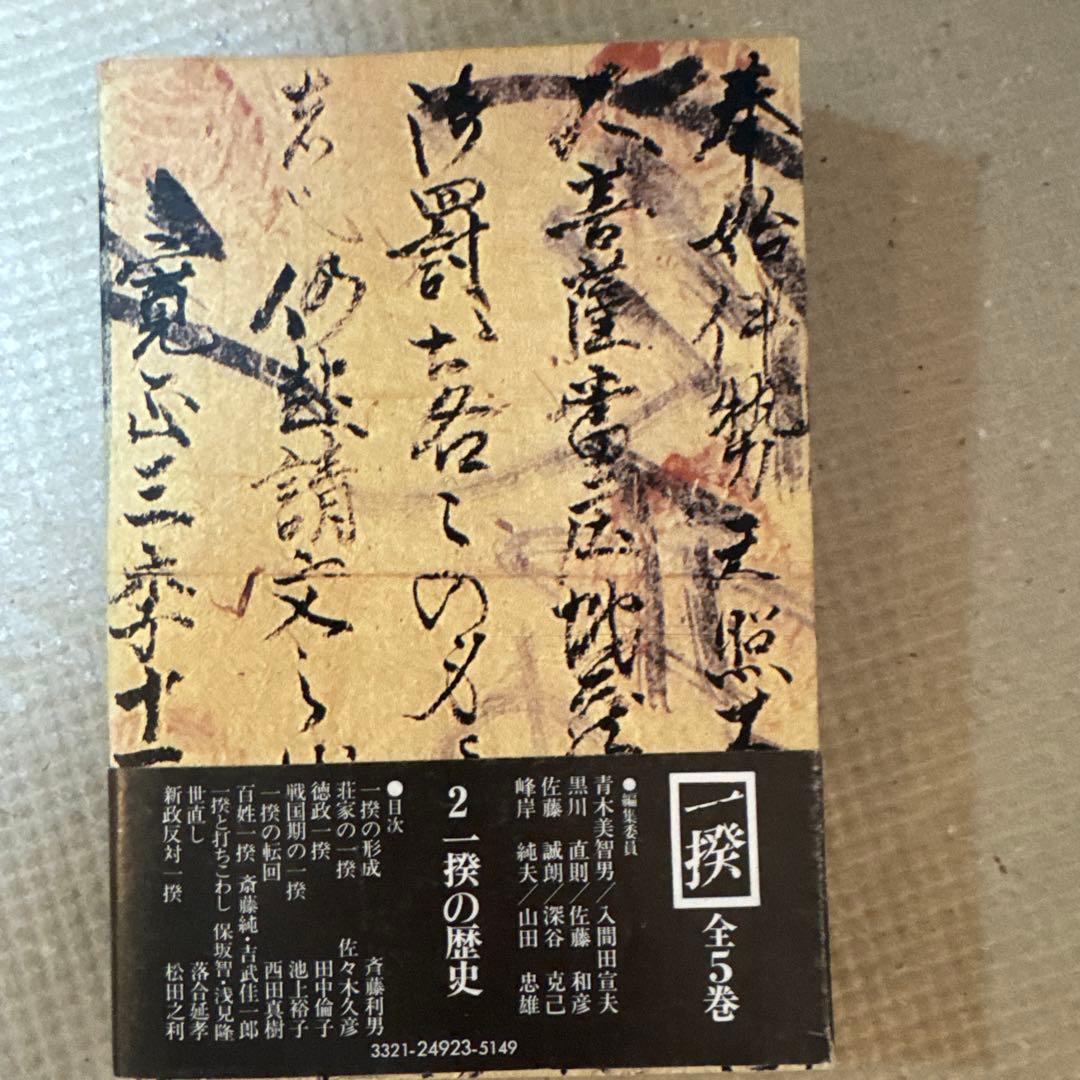 奉始伊勢天照大
大菩薩
御罰お各々の身
者也仍起請文之
寛正三季十一
一揆
全5巻
●編集委員
青木美智男/入間田宣夫
黒川 直則/佐藤 和彦
佐藤 誠朗/深谷 克己
峰岸 純夫/山田 忠雄
2 一揆の歴史
●目次
一揆の形成 斉藤利男
荘家の一揆 佐々木久彦
徳政一揆 田中倫子
戦国期の一揆 池上裕子
一揆の転回 西田真樹
百姓一揆 斎藤純・吉武佳一郎
一揆と打ちこわし 保坂智・浅見隆
世直し 落合延孝
新政反対一揆 松田之利
3321-24923-5149